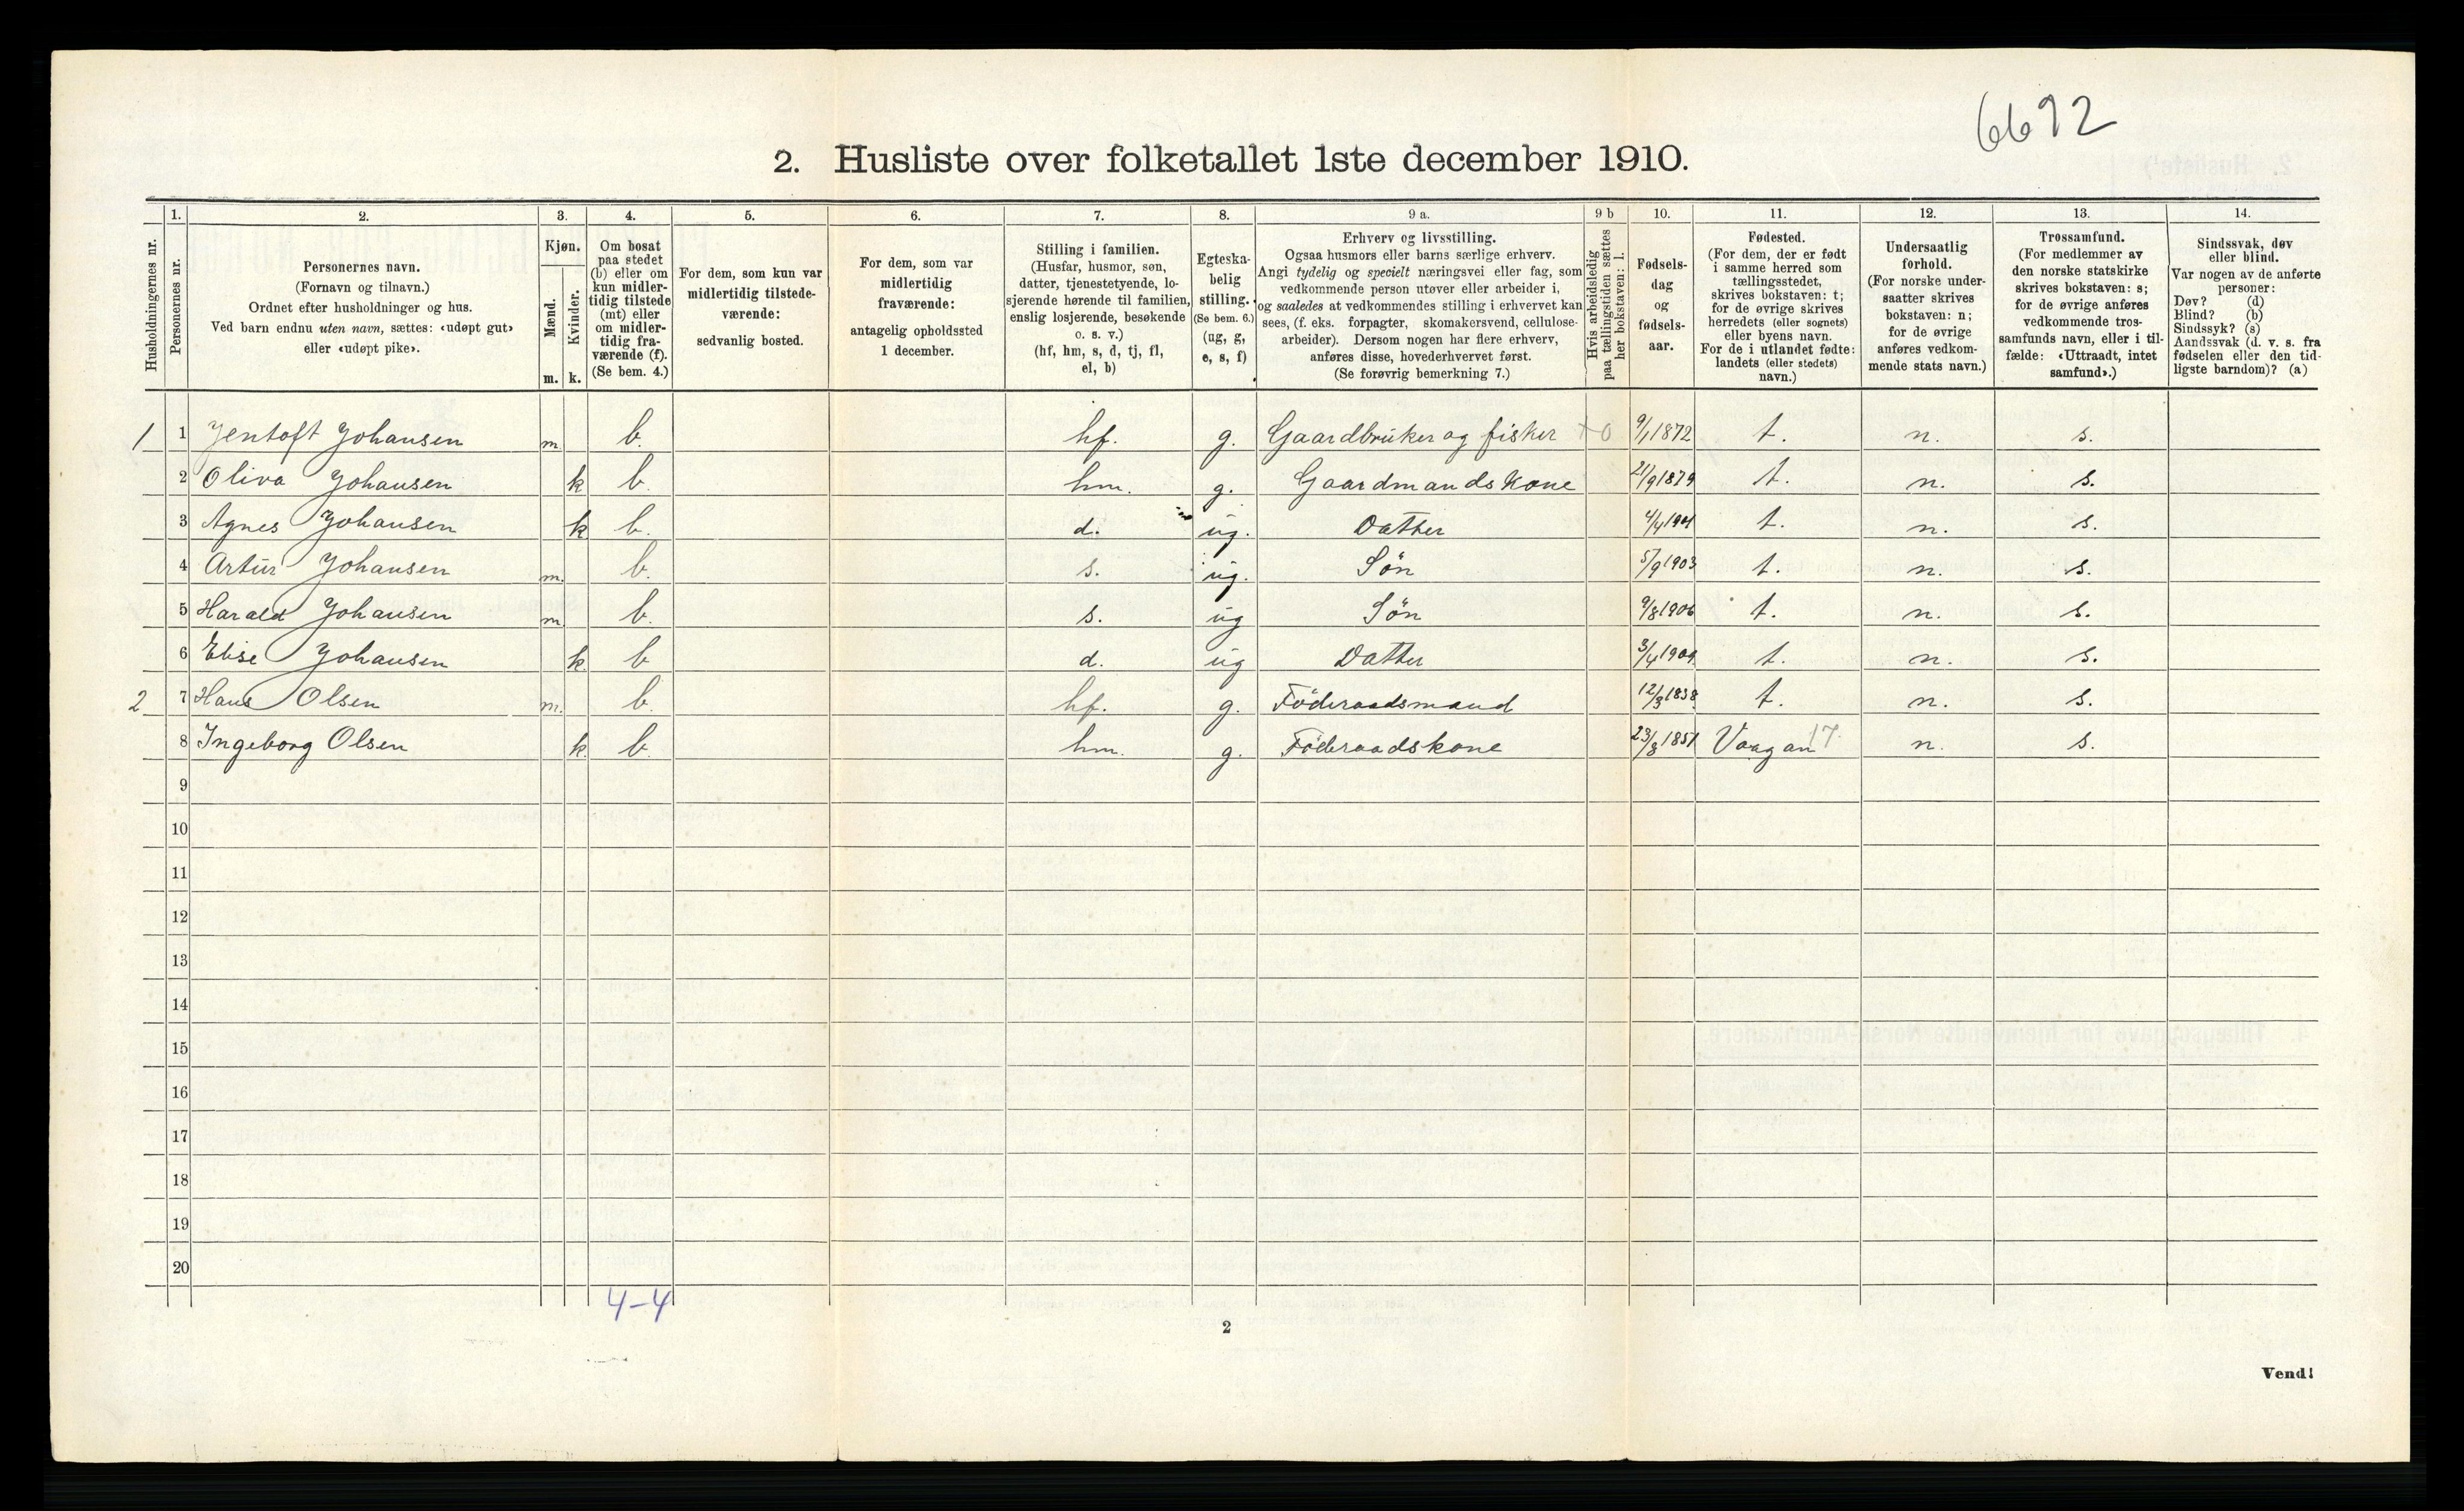 6692
2. Husliste over folketallet 1ste december 1910.
Husholdningernes nr.
1.
Personernes nr.
2.
Personernes navn.
(Fornavn og tilnavn.)
Ordnet efter husholdninger og hus.
Ved barn endnu uten navn, sættes: «udøpt gut»
eller «udøpt pike».
3.
Kjøn.
Mænd.
Kvinder.
m. k.
4.
Om bosat
paa stedet
(b) eller om
kun midler-
tidig tilstede
(mt) eller
om midler-
tidig fra-
værende (f).
(Se bem. 4.)
5.
For dem, som kun var
midlertidig tilstede-
værende:
sedvanlig bosted.
6.
For dem, som var
midlertidig
fraværende:
antagelig opholdssted
1 december.
7.
Stilling i familien.
(Husfar, husmor, søn,
datter, tjenestetyende, lo-
sjerende hørende til familien,
enslig losjerende, besøkende
o. s. v.)
(hf, hm, s, d, tj, fl,
el, b)
8.
Egteska-
belig
stilling.
(Se bem. 6.)
(ug, g,
e, s, f)
9 a.
Erhverv og livsstilling.
Ogsaa husmors eller barns særlige erhverv.
Angi tydelig og specielt næringsvei eller fag, som
vedkommende person utøver eller arbeider i,
og saaledes at vedkommendes stilling i erhvervet kan
sees, (f. eks. forpagter, skomakersvend, cellulose-
arbeider). Dersom nogen har flere erhverv,
anføres disse, hovederhvervet først.
(Se forøvrig bemerkning 7.)
9 b
Hvis arbeidsledig
paa tællingstiden sættes
her bokstaven: l.
10.
Fødsels-
dag
og
fødsels-
aar.
11.
Fødested.
(For dem, der er født
i samme herred som
tællingsstedet,
skrives bokstaven: t;
for de øvrige skrives
herredets (eller sognets)
eller byens navn.
For de i utlandet fødte:
landets (eller stedets)
navn.)
12.
Undersaatlig
forhold.
(For norske under-
saatter skrives
bokstaven: n;
for de øvrige
anføres vedkom-
mende stats navn.)
13.
Trossamfund.
(For medlemmer av
den norske statskirke
skrives bokstaven: s;
for de øvrige anføres
vedkommende tros-
samfunds navn, eller i til-
fælde: «Uttraadt, intet
samfund».)
14.
Sindssvak, døv
eller blind.
Var nogen av de anførte
personer:
Døv? (d)
Blind? (b)
Sindssyk? (s)
Aandssvak (d. v. s. fra
fødselen eller den tid-
ligste barndom)? (a)
1 1 Jentoft Johansen m b. hf. g. Gaardbruker og fisker +0 9/1 1872 t. n. s.
2 Oliva Johansen k b. hm. g. Gaardmandskone 21/9 1879 t. n. s.
3 Agnes Johansen k b. d. ug. Datter 4/4 1901 t. n. s.
4 Artur Johansen m. b. s. ug. Søn 5/9 1903 t. n. s.
5 Harald Johansen m b. s. ug Søn 9/8 1906 t. n. s.
6 Elise Johansen k b d. ug Datter 3/4 1909 t. n. s.
2 7 Hans Olsen m. b. hf. g. Föderaadsmand 12/3 1838 t. n. s.
8 Ingeborg Olsen k b. hm. g. Föderaadskone 23/8 1851 Vaagan 17 n. s.
9
10
11
12
13
14
15
16
17
18
19
20
4-4
2
Vend!